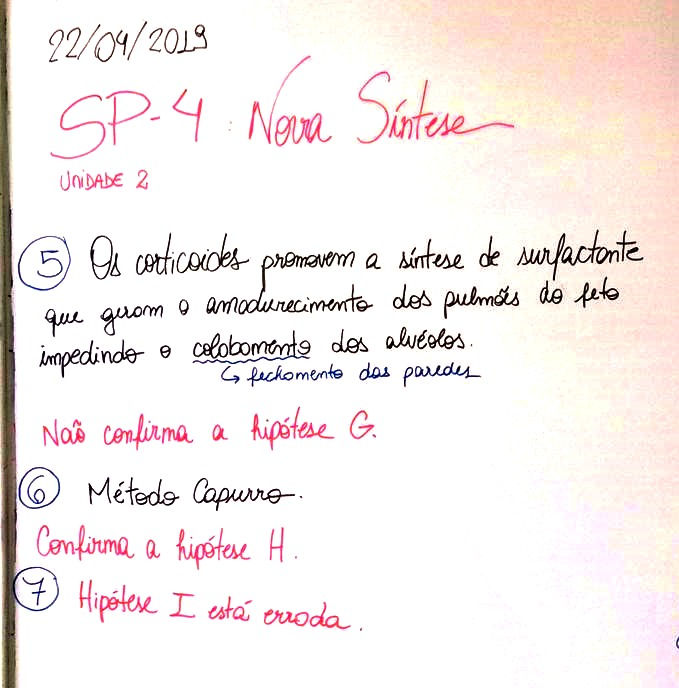 22/04/2019
SP-4: Nova Síntese
UNIDADE 2
5 Os corticoides promovem a síntese de surfactante
que geram o amadurecimento dos pulmões do feto
impedindo o colabamento dos alvéolos.
↳ fechamento das paredes
Não confirma a hipótese G.
6 Método Capurro.
Confirma a hipótese H.
7 Hipótese I está errada.